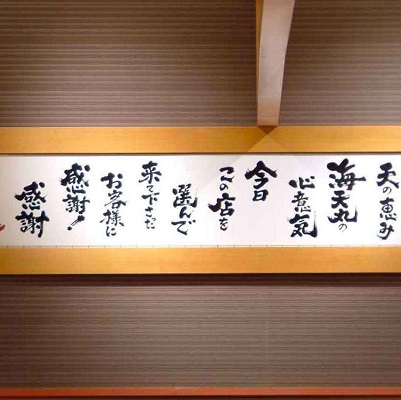 天の恵み
海天丸の
心意気
今日
この店を
選んで
来て下さった
お客様に
感謝!
感謝